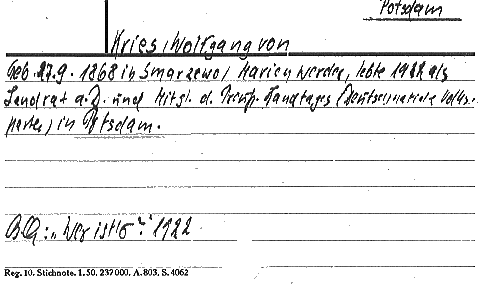 Potsdam
Kries, Wolfgang von
Geb. 27.9. 1868 in Smarzewo/Marienwerder, lebte 1922 als
Landrat a.D. und Mitgl. d. Preuß. Landtages (Deutschnationale Volks-
partei) in Potsdam.
"Wer ist's?" 1922
Reg. 10. Stichnote. 1. 50. 237 000. A. 803. S. 4062